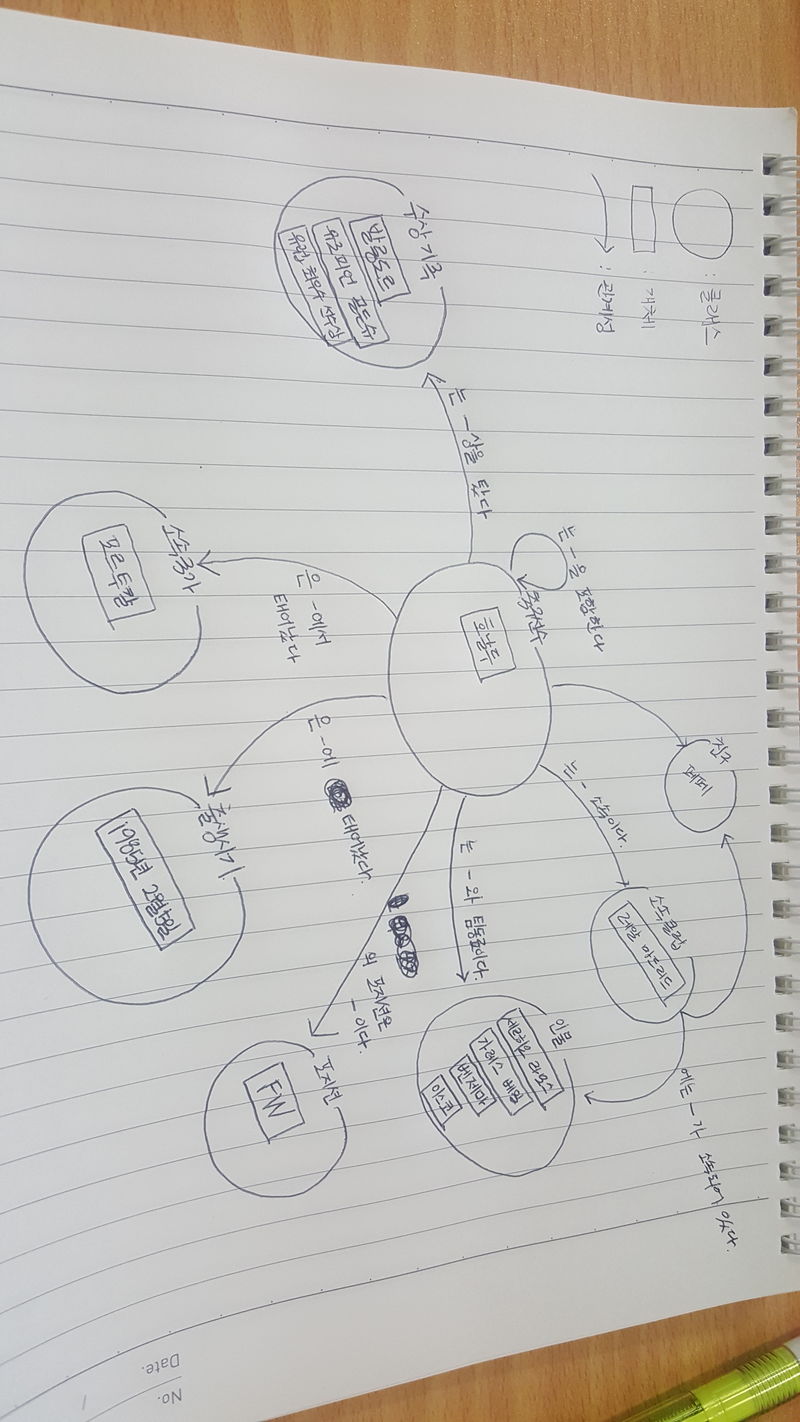 : 클래스
: 개체
: 관계성
수상기록
발롱도르
유로피언 골든슈
유럽 최우수 선수상
는 -상을 탔다
는 -을 포함한다
축구선수
호날두
소속국가
포르투갈
은 -에서
태어났다
출생시기
1985년 2월5일
은 -에
태어났다.
친구
페페
는 - 소속이다.
소속클럽
레알 마드리드
는 -와 팀동료이다.
인물
세르히오 라모스
가레스 베일
벤제마
이스코
에는 -가 소속되어 있다.
의 포지션은
-이다.
포지션
FW
Date.
No.